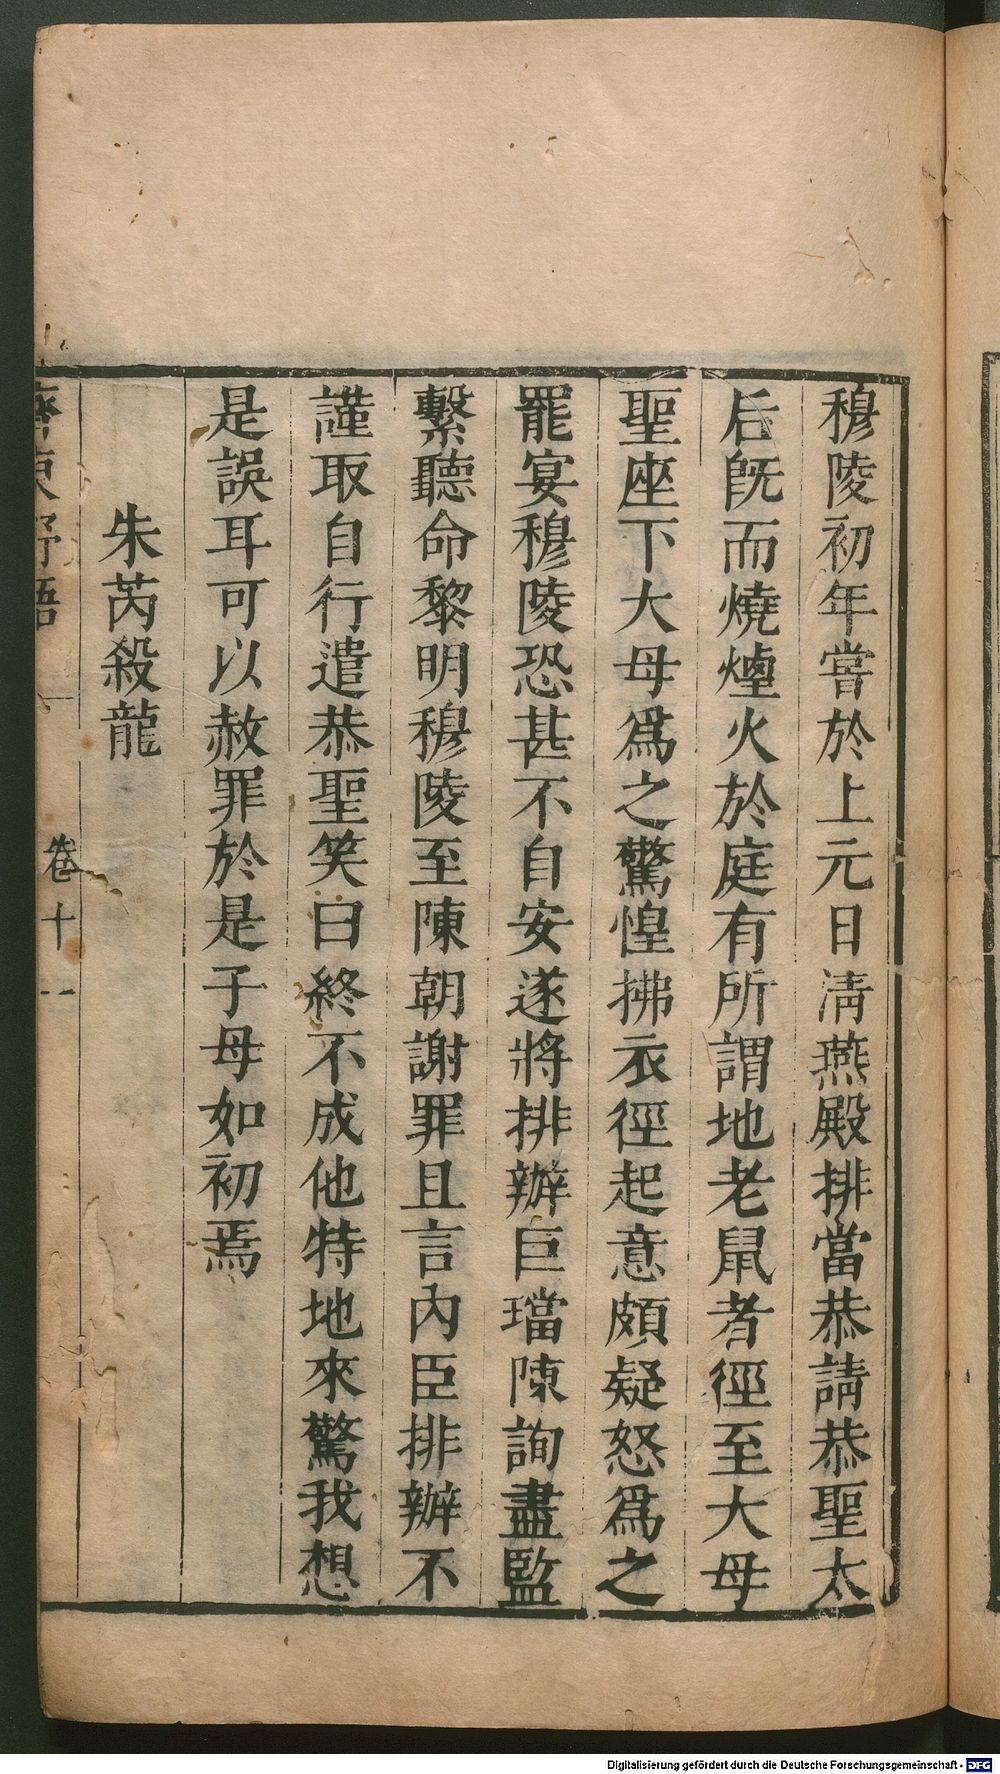 穆陵初年嘗於上元日清燕殿排當恭請恭聖太
后旣而燒煙火於庭有所謂地老鼠者徑至大母
聖座下大母爲之驚惶拂衣徑起意頗疑怒爲之
罷宴穆陵恐甚不自安遂將排辦巨璫陳詢盡監
繫聽命黎明穆陵至陳朝謝罪且言內臣排辦不
謹取自行遣恭聖笑曰終不成他特地來驚我想
是誤耳可以赦罪於是子母如初焉
朱芮殺龍
齊東野語 卷十一
Digitalisierung gefördert durch die Deutsche Forschungsgemeinschaft - DFG